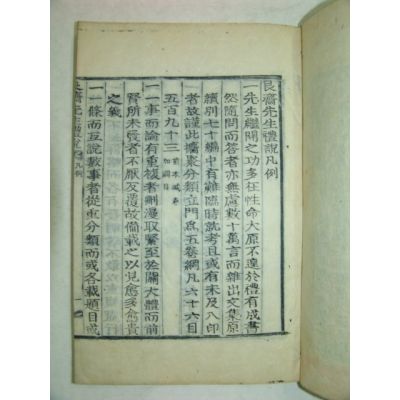 艮齋先生禮說凡例
一先生繼開之功多在性命大原不遑於禮有成書
然隨問而答者亦無慮數十萬言而雜出文集原
續別七十編中有難臨時就考且或有未及入印
者故謹此裒分類立門爲五卷綱凡六十六目
五百九十三
一一事而論有重複者刪漫取緊至於關大體而前
賢所未發者不厭反覆故備載之以見愈多愈貴
之義
一一條而互說數事者從重分類而或各載題目或
艮齋先生禮說 凡例 一